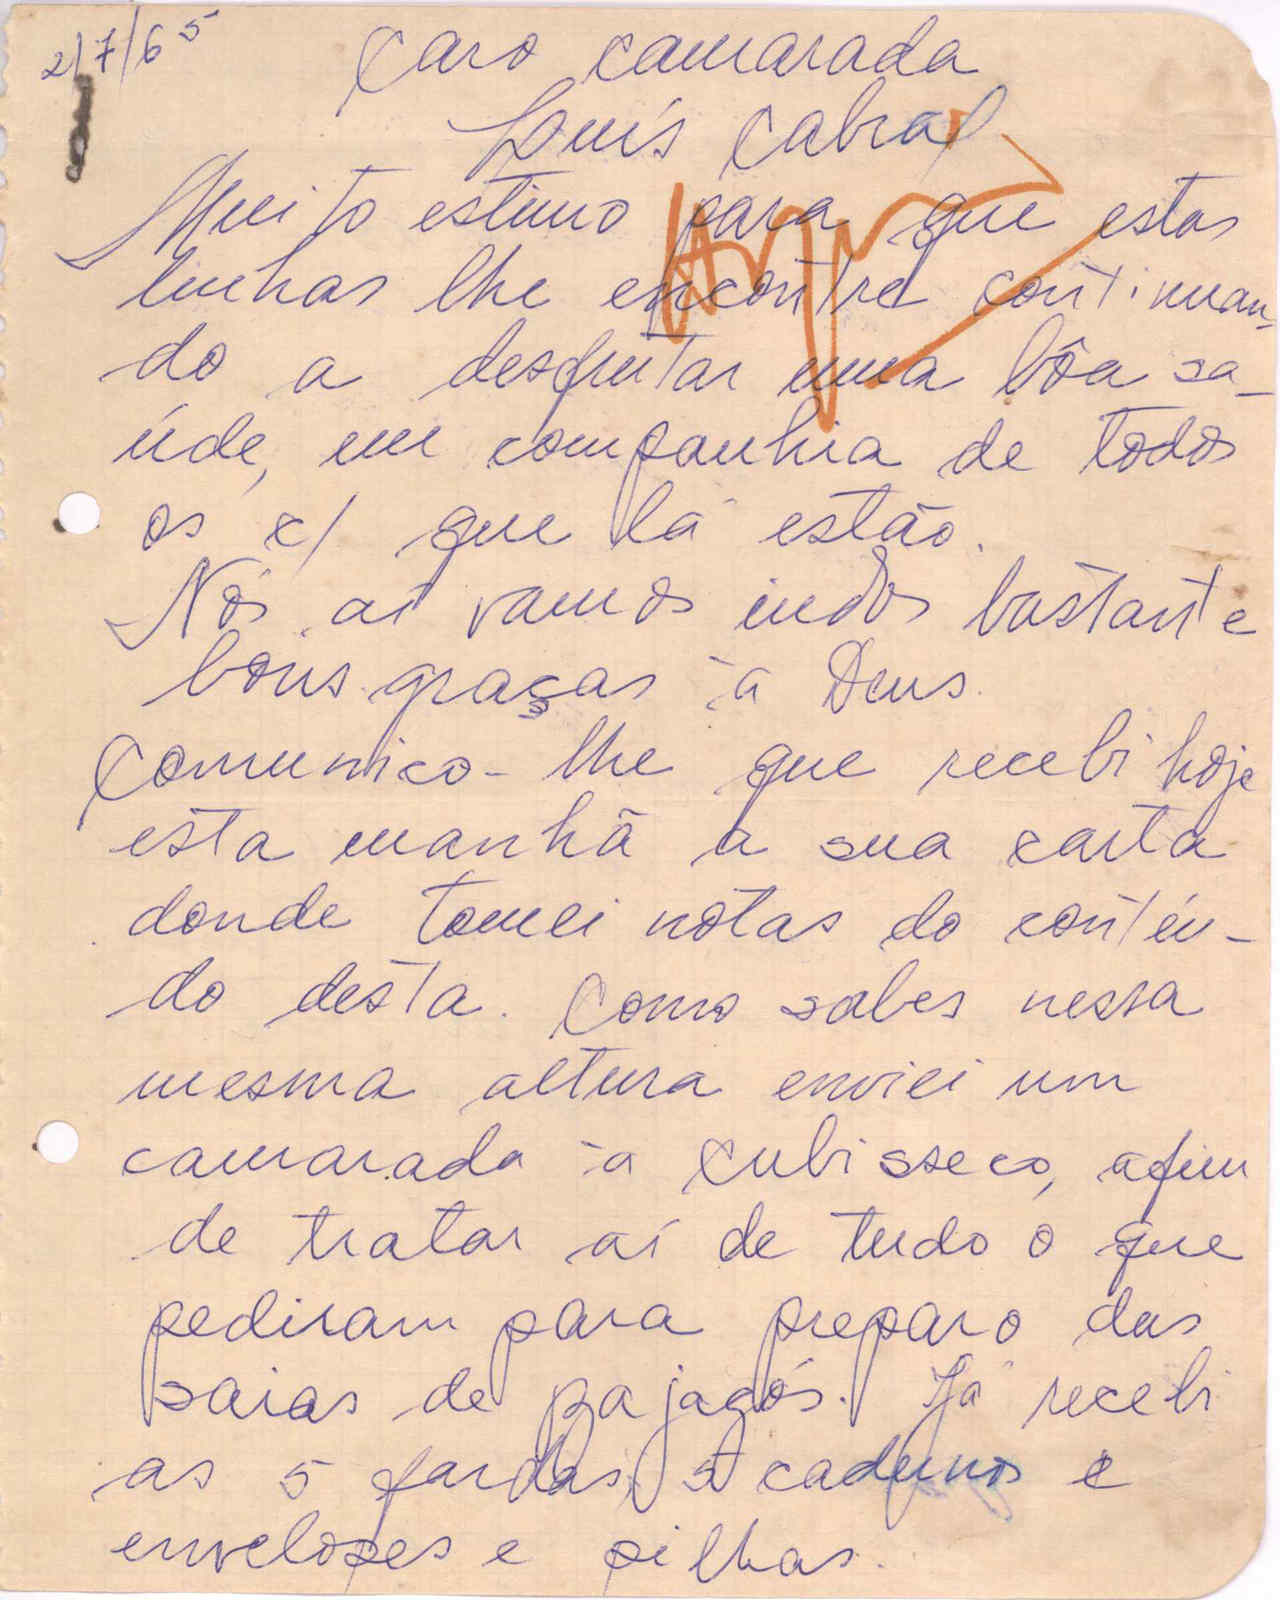 2/7/65
Caro camarada
Luís Cabral
Muito estimo para que estas
linhas lhe encontre continuan-
do a desfrutar uma bôa sa-
úde, em companhia de todos
os c/ que lá estão.
Nós aí vamos indos bastante
bons graças à Deus.
Comunico-lhe que recebi hoje
esta manhã a sua carta
donde tomei notas do conteú-
do desta. Como sabes nessa
mesma altura enviei um
camarada à Cubisseco, afim
de tratar aí de tudo o que
pediram para preparo das
saias de pajagós. Já recebi
as 5 fardas, 5 cadernos e
envelopes e pilhas.